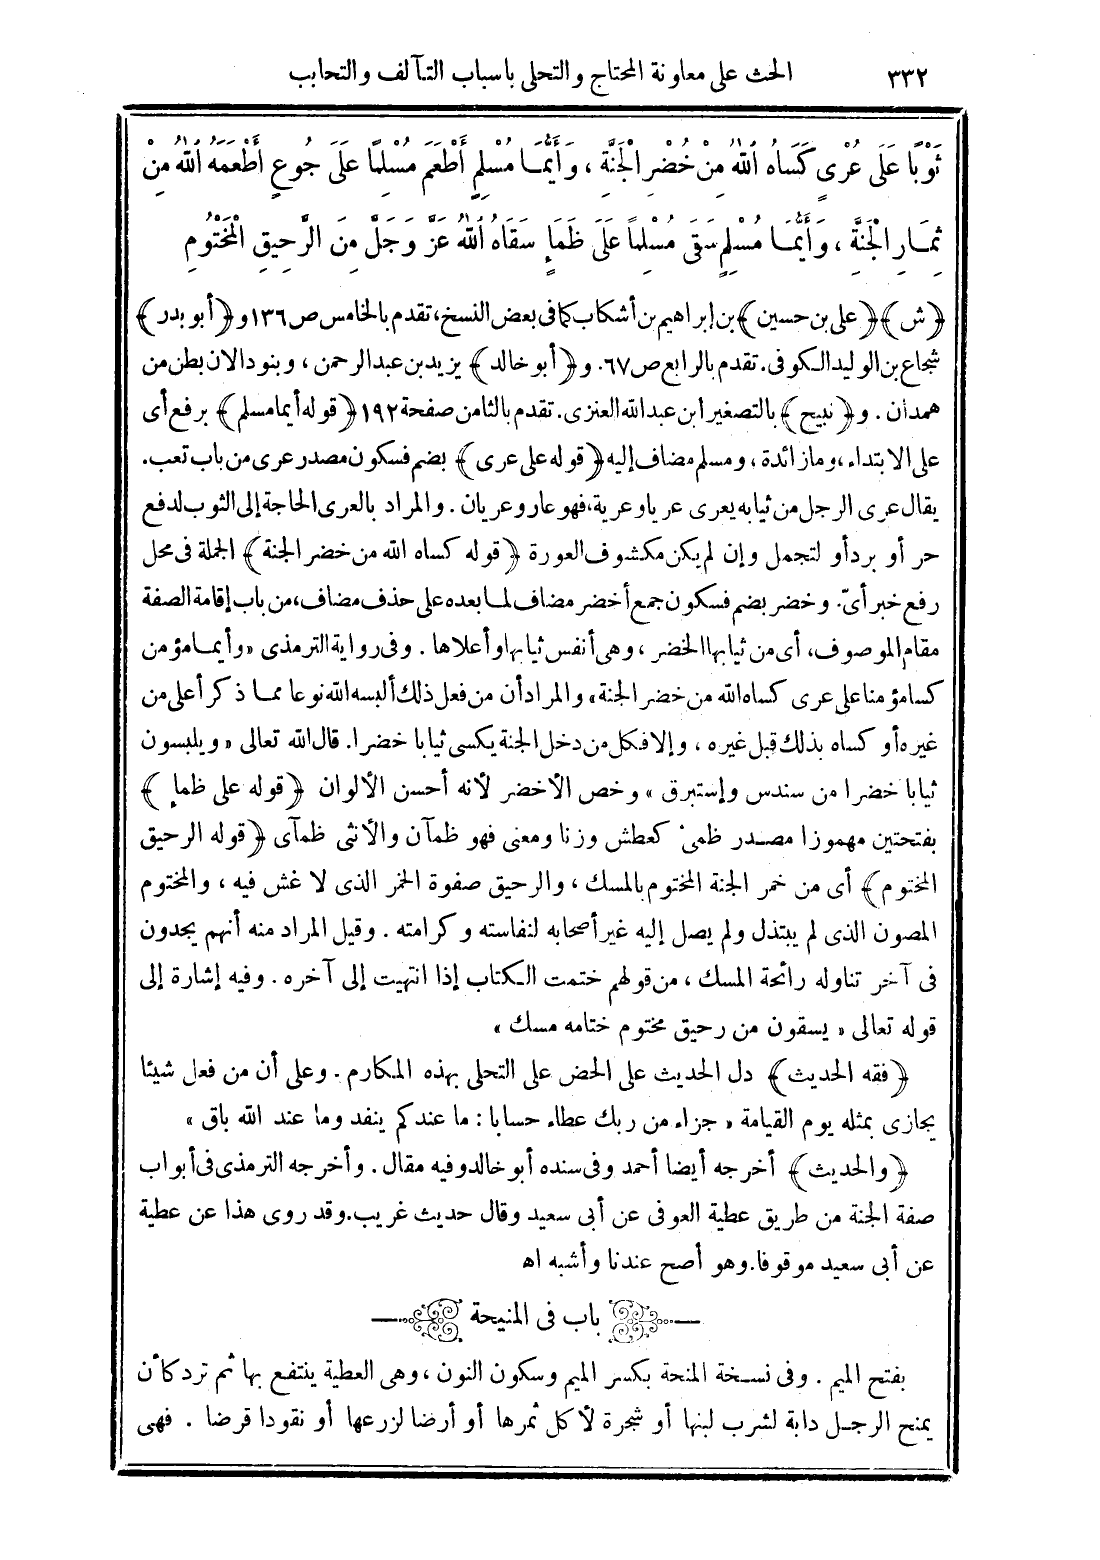 ٣٣٢ الحث على معاونة المحتاج والتحلى بأسباب التآلف والتحابب
ثَوْبًا عَلَى عُرْىٍ كَسَاهُ اللهُ مِنْ خُضْرِ الْجَنَّةِ ، وَأَيُّمَا مُسْلِمٍ أَطْعَمَ مُسْلِمًا عَلَى جُوعٍ أَطْعَمَهُ اللهُ مِنْ
ثِمَارِ الْجَنَّةِ ، وَأَيُّمَا مُسْلِمٍ سَقَى مُسْلِمًا عَلَى ظَمَإٍ سَقَاهُ اللهُ عَزَّ وَجَلَّ مِنَ الرَّحِيقِ الْمَخْتُومِ
﴿ش﴾ ﴿على بن حسين﴾ بن إبراهيم بن أشكاب كما فى بعض النسخ، تقدم بالخامس ص ١٣٦ و﴿أبو بدر﴾
شجاع بن الوليد الكوفى. تقدم بالرابع ص ٦٧. و﴿أبو خالد﴾ يزيد بن عبد الرحمن ، وبنو دالان بطن من
همدان . و﴿نبيح﴾ بالتصغير ابن عبد الله العنزى. تقدم بالثامن صفحة ١٩٢ ﴿قوله أيما مسلم﴾ برفع أى
على الابتداء، وما زائدة ، ومسلم مضاف إليه ﴿قوله على عرى﴾ بضم فسكون مصدر عرى من باب تعب.
يقال عرى الرجل من ثيابه يعرى عريا وعرية، فهو عار وعريان . والمراد بالعرى الحاجة إلى الثوب لدفع
حر أو برد أو لتجمل وإن لم يكن مكشوف العورة ﴿قوله كساه الله من خضر الجنة﴾ الجملة فى محل
رفع خبر أىّ. وخضر بضم فسكون جمع أخضر مضاف لما بعده على حذف مضاف، من باب إقامة الصفة
مقام الموصوف، أى من ثيابها الخضر ، وهى أنفس ثيابها وأعلاها . وفى رواية الترمذى « وأيما مؤمن
كسا مؤمنا على عرى كساه الله من خضر الجنة» والمراد أن من فعل ذلك ألبسه الله نوعا مما ذكر أعلى من
غيره أو كساه بذلك قبل غيره ، وإلا فكل من دخل الجنة يكسى ثيابا خضرا. قال الله تعالى « ويلبسون
ثيابا خضرا من سندس وإستبرق » وخص الأخضر لأنه أحسن الألوان ﴿قوله على ظمإ﴾
بفتحتين مهموزا مصدر ظمئ كعطش وزنا ومعنى فهو ظمآن والأنثى ظمآى ﴿قوله الرحيق
المختوم﴾ أى من خمر الجنة المختوم بالمسك ، والرحيق صفوة الخمر الذى لا غش فيه ، والمختوم
المصون الذى لم يبتذل ولم يصل إليه غير أصحابه لنفاسته وكرامته . وقيل المراد منه أنهم يجدون
فى آخر تناوله رائحة المسك ، من قولهم ختمت الكتاب إذا انتهيت إلى آخره . وفيه إشارة إلى
قوله تعالى « يسقون من رحيق مختوم ختامه مسك »
﴿فقه الحديث﴾ دل الحديث على الحض على التحلى بهذه المكارم . وعلى أن من فعل شيئا
يجازى بمثله يوم القيامة « جزاء من ربك عطاء حسابا : ما عندكم ينفد وما عند الله باق »
﴿والحديث﴾ أخرجه أيضا أحمد وفى سنده أبو خالد وفيه مقال . وأخرجه الترمذى فى أبواب
صفة الجنة من طريق عطية العوفى عن أبى سعيد وقال حديث غريب. وقد روى هذا عن عطية
عن أبى سعيد موقوفا. وهو أصح عندنا وأشبه اه
باب فى المنيحة
بفتح الميم . وفى نسخة المنحة بكسر الميم وسكون النون ، وهى العطية ينتفع بها ثم ترد كأن
يمنح الرجل دابة لشرب لبنها أو شجرة لأكل ثمرها أو أرضا لزرعها أو نقودا قرضا . فهى